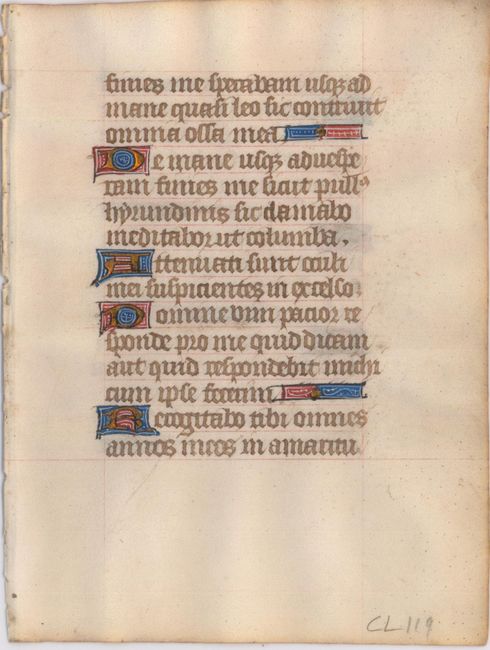 finies me sperabam usqz ad
mane quasi leo sic contrivit
omnia ossa mea
De mane usqz ad vespe
ram finies me sicut pullꝰ
hyrundinis sic clamabo
meditabor ut columba.
Attenuati sunt oculi
mei suspicientes in excelso.
Domine vim pacior re
sponde pro me quid dicam
aut quid respondebit michi
cum ipse fecerim
Recogitabo tibi omnes
annos meos in amaritu
CL 119